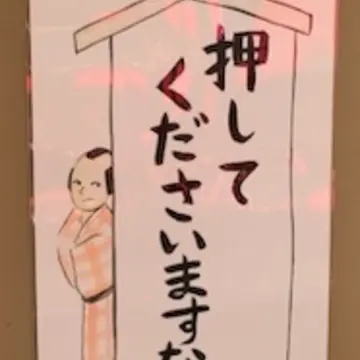 押して
くださいますな